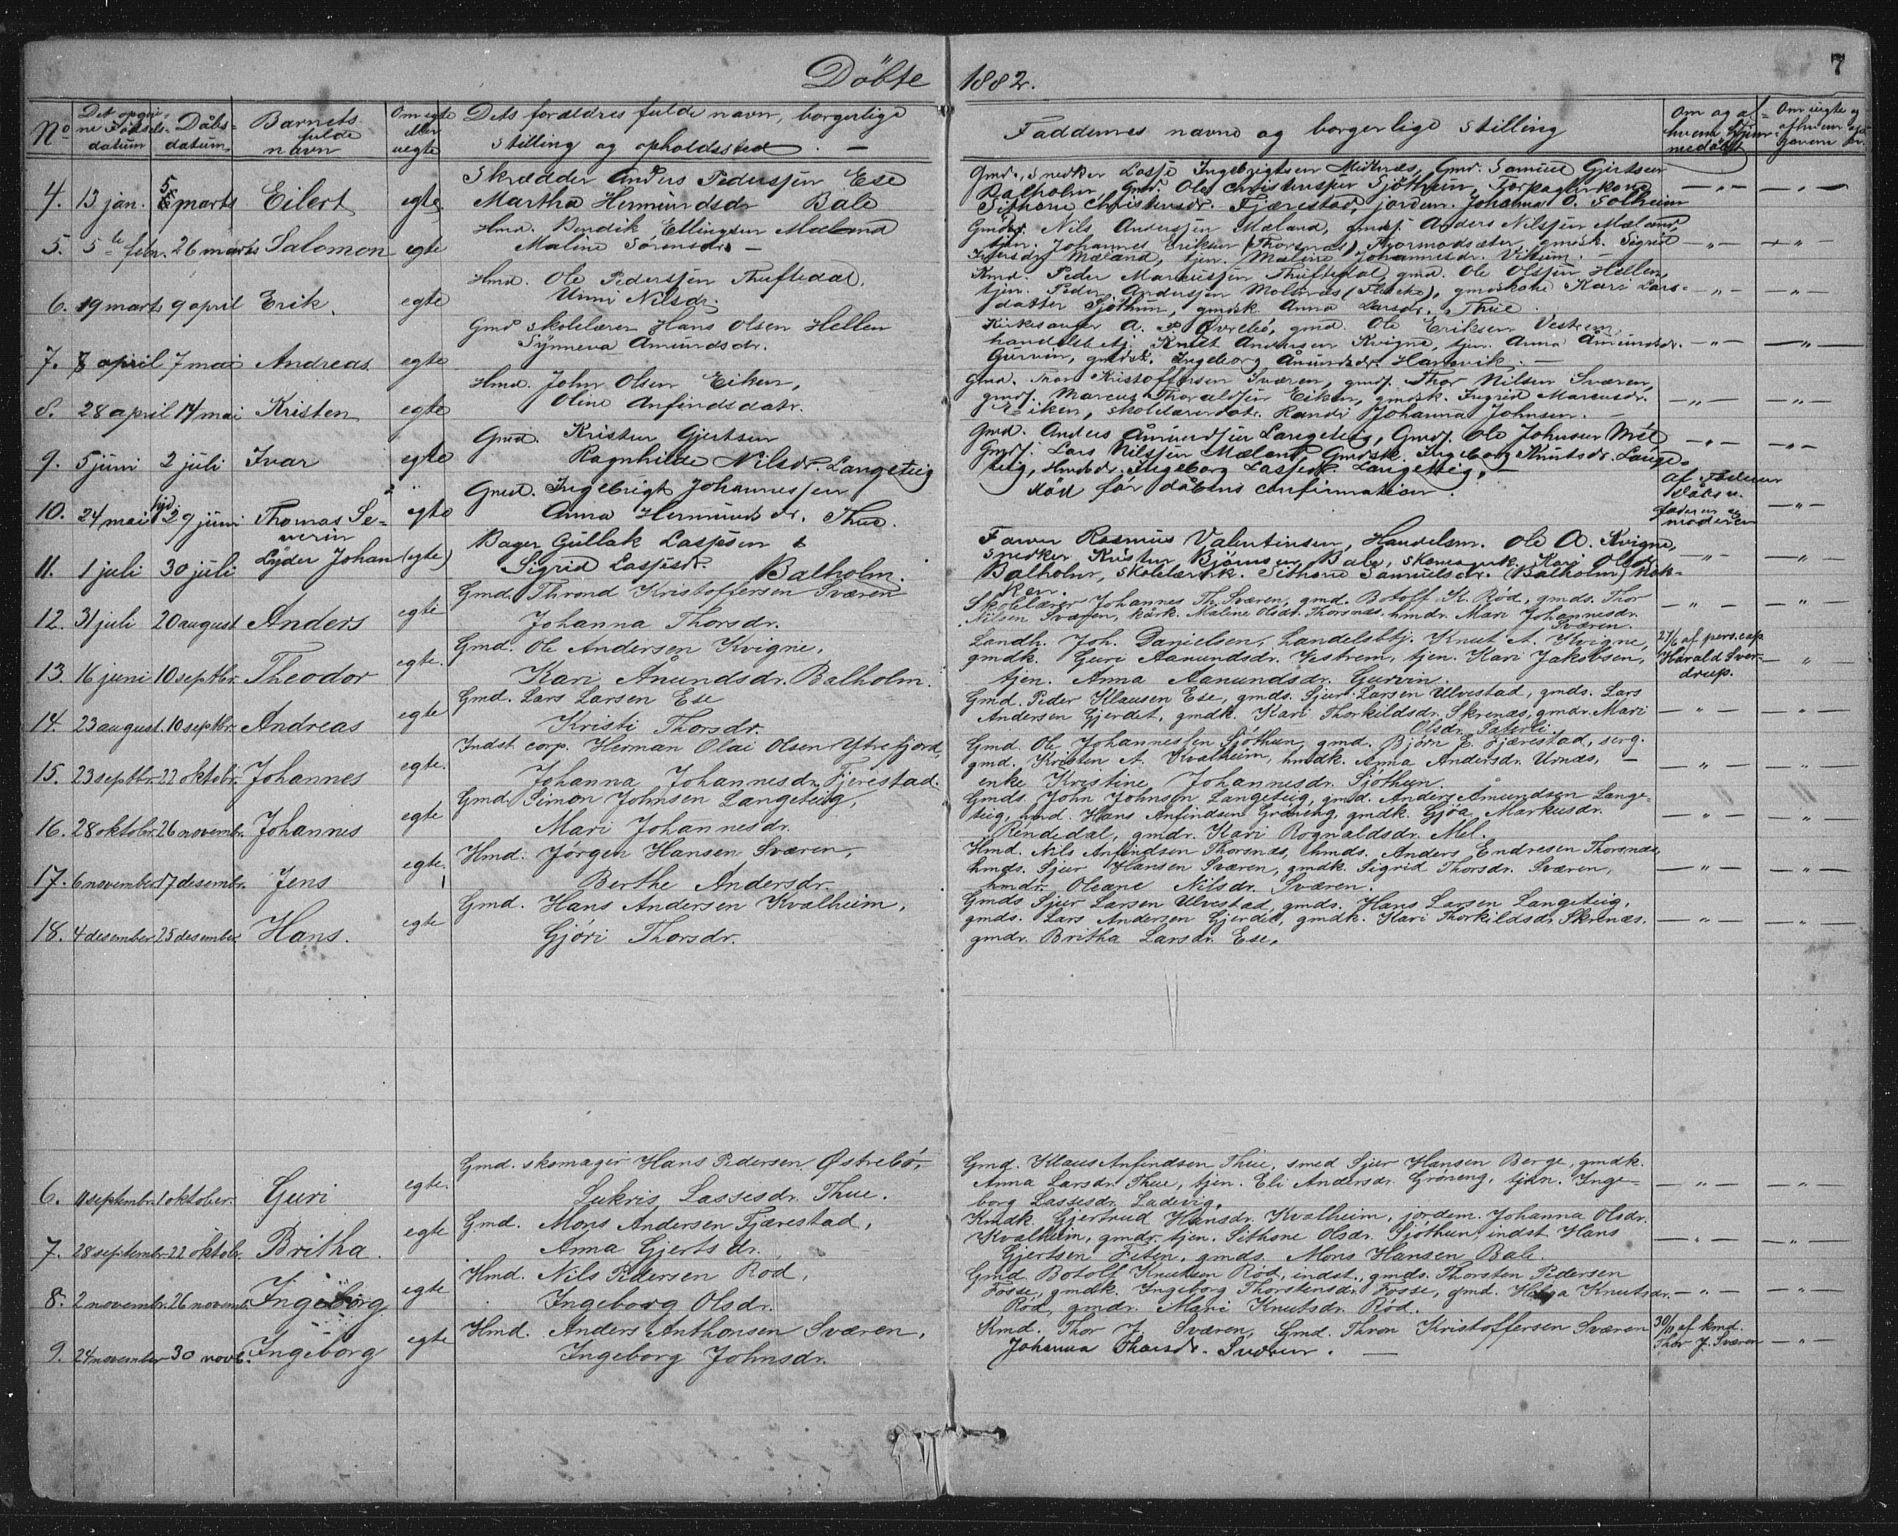 Döbte 1882.
7
No
Det opgivne Födselsdatum
Dåbsdatum
Barnets fulde navn
Om egte eller uegte
Dets forældres fulde navn, borgerlige stilling og opholdssted.
Faddernes navne og borgerlige stilling
Om og af hvem hjemmedöbt
4. 13 jan. 5 marts Eilert egte
Skrædder Anders Pedersen Ese
Martha Hermundsdr Bale
Gmd., snedker Lasse Ingebrigtsen Midtnæs, Gmd. Samuel Gjertsen
Balholm, Gmd. Ole Christensen Sjöthun,
Sithone Christensdr. Fjærestad, jordem. Johanna O. Solheim
5. 5te febr. 26 marts Salomon egte
Hmd. Bendik Ellingsen Mæland
Maline Sørensdr. —
Gmd. Nils Andersen Mæland, gmds. Anders Nilsen Mæland,
tjen. Johannes Eriksen (Thorsnæs) Tjormodsæter, gmdsk. Sigrid
Iversdr. Mæland, tjen. Maline Johannesdr. Vetum. —
6. 19 marts 9 april Erik. egte
Hmd. Ole Pedersen Thuftedal,
Unni Nilsdr.
Kmd. Peder Marcussen Thuftedal, gmd. Ole Olsen Hellen,
tjen. Peder Andersen Molsnæs (Flæcke), gmdskone Kari Lars-
datter Sjöthun, gmdsk. Anna Larsdr. Thue.
7. 8 april 7 mai Andreas egte
Gmd skolelærer Hans Olsen Hellen
Synneva Amundsdr.
Kirkesanger A. Øvrebö, gmd. Ole Eriksen Vestrem,
handelsbetj. Knut Andersen Kvigne, tjen. Anna Åmundsdr.
Gurvin, gmdsk. Ingeborg Åmundsdr. Hamvik. —
8. 28 april 14 mai Kristen egte
Hmd. John Olsen Eiken,
Oline Anfindsdatr.
Gmd. Thron Kristoffersen Sværen, gmds. Thor Nilsen Sværen,
gmds. Marcus Thoraldsen Eiken, gmdsk. Ingrid Marcusdr.
Eiken, skolelærerdatr. Randi Johanna Johnsen. —
9. 5 juni 2 juli Ivar egte
Gmd. Kristen Gjertsen
Ragnhilde Nilsdr. Langeteig
Gmd. Anders Åmundsen Langeteig, Gmds. Ole Johnsen Mel
Gmds. Lars Nilssen Mæland, Gmdsk. Ingeborg Knutsdr. Lange-
teig, Hmdsdr. Ingeborg Lassesdr. Langeteig.
10. 24 mai 29 juni Thomas Severin egte
Gmd. Ingebrigt Johannessen
Anna Hermundsdr. Thue.
död för dåbens confirmation.
moderen
11. 1 juli 30 juli Lyder Johan (egte)
Bager Gullak Lassesen
Sigrid Lassesdr. Balholm.
Farver Rasmus Valentinsen, Handelsm. Ole A. Kvigne,
Snedker Kristen Björnsen Bale, Kari Olsdr.
Balholm, skolelærerk. Sithone Samuelsdr. (Balholm) Nök-
ken.
12. 31 juli 20 august Anders egte
Gmd. Thrond Kristoffersen Sværen
Johanna Thorsdr.
Skolelærer Johannes Th. Sværen, gmd. Botolf K. Röd, gmds. Thor
Nilsen Sværen, kårk. Maline Olsdr. Thorsnæs, hmdr. Mari Johannesdr.
Sværen.
13. 16 juni 10 septbr. Theodor egte.
Gmd. Ole Andersen Kvigne,
Kari Åmundsdr. Balholm.
Landh. Joh. Danielsen, Handelsbtj. Knut A. Kvigne,
gmdk. Guri Aamundsdr. Vestrem, tjen. Kari Jakobsen,
tjen. Anna Aamundsdr. Gurvin.
27/6 af pers. cap
Harald Sverdrup.
14. 23 august. 10 septbr. Andreas egte
Gmd. Lars Larsen Ese
Kristi Thorsdr.
Gmd. Peder Klausen Ese, gmds. Sjur Larsen Ulvestad, gmds. Lars
Andersen Gjerdet, gmdk. Kari Thorkildsdr. Skrenæs, gmdr. Mari
Olsdr. Saterli.
15. 23 septbr. 22 oktobr. Johannes egte.
Indst. corp. Herman Olai Olsen Ytrefjord,
Johanna Johannesdr. Fjerestad.
Gmd. Ole Johannessen Sjöthun, gmd. Björn E. Fjærestad, serg.
gmd. Kristen A. Kvalheim, hmdk. Anna Andersdr. Urnæs, —
enke Kristine Johannesdr. Sjöthun.
16. 28 oktobr. 26 novembr. Johannes egte
Gmd. Simon Johnsen Langeteig,
Mari Johannesdr.
Gmds. John Johnsen Langeteig, gmd. Anders Åmundsen Lange-
teig, hmd. Hans Anfindsen Gröning, gmdk. Gjöa Markusdr.
Rendedal, gmdr. Kari Rognaldsdr. Mel.
17. 6 november 17 desembr. Jens egte.
Hmd. Jørgen Hansen Sværen,
Berthe Andersdr.
Hmd. Nils Anfindsen Thorsnæs, hmds. Anders Endresen Thorsnæs,
hmds. Sjur Hansen Sværen, gmdk. Sigrid Thorsdr. Sværen,
hmdr. Oleane Nilsdr. Sværen.
18. 4 desember 25 desember. Hans. egte
Gmd. Hans Andersen Kvalheim,
Gjöri Thorsdr.
Gmds Sjur Larsen Ulvestad, gmds. Hans Larsen Langeteig,
gmds. Lars Andersen Gjerdet, gmdk. Kari Thorkildsdr. Skrenæs.
gmdr. Britha Larsdr. Ese.
6. 11 septembr. 1 oktober. Guri egte.
Gmd. skomager Hans Pedersen Østrebö,
Lukris Lassesdr. Thue.
Gmd. Klaus Anfindsen Thue, smed Sjur Hansen Berge, gmdk.
Anna Larsdr. Thue, tjen. Eli Andersdr. Gröneng, tjen. Inge-
borg Lassesdr. Ladevig.
7. 28 septembr. 22 oktobr. Britha. egte
Gmd. Mons Andersen Fjærestad,
Anna Gjertsdr.
Kmdk. Gjertrud Hansdr. Kvalheim, jordem. Johanna Olsdr.
Kvalheim, gmdr. tjen. Sithone Olsdr. Sjöthun, indst. Hans
Gjertsen Feten, gmds. Mons Hansen Bale.
8. 2 novembr. 26 novemb. Ingeborg egte
Hmd. Nils Pedersen Röd,
Ingeborg Olsdr.
Gmd. Botolf Knutsen Röd, indst., gmds. Thorsten Pedersen
Fosse, gmdk. Ingeborg Thorstensdr. Fosse, gmd. Helga Knutsdr.
Röd, gmdr. Mari Knutsdr. Röd.
9. 24 november 30 novb. Ingeborg egte
Hmd. Anders Anthonsen Sværen,
Ingeborg Johnsdr.
Kmd. Thor J. Sværen, Gmd. Thron Kristoffersen Sværen
Johanna Thorsdr. Sværen. —
30/11 af kmd.
Thor J. Sværen